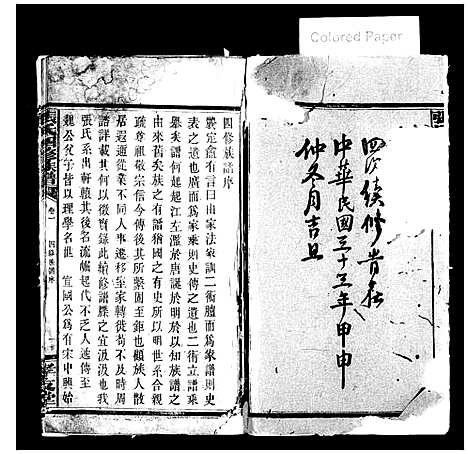 Colored Paper
四次續修
中華民國三十三年甲申
仲冬月吉旦
四修族譜序
嚴定僉有言曰由家法家訓二術臚而爲家譜則史
表之遺也廣而爲家乘則史傳之遺也二術立譜乘
舉矣譜何起起江左濫於唐誕於明於以知族譜之
由來舊矣族之有譜猶國之有史所以明世系合親
疏尊祖敬宗信今傳後其所繫固至鉅也顧族人散
居遐邇從業不同人事遷移至家轉徙苟不及時周
諮詳載其何以徵實錄此續修譜牒之宜汲汲也我
張氏系出軒轅其後名流崛起代不乏人遞傳至
魏公父子皆以理學名世 宣國公爲有宋中興始
張氏四修族譜
卷一
四修族譜序
孝友堂